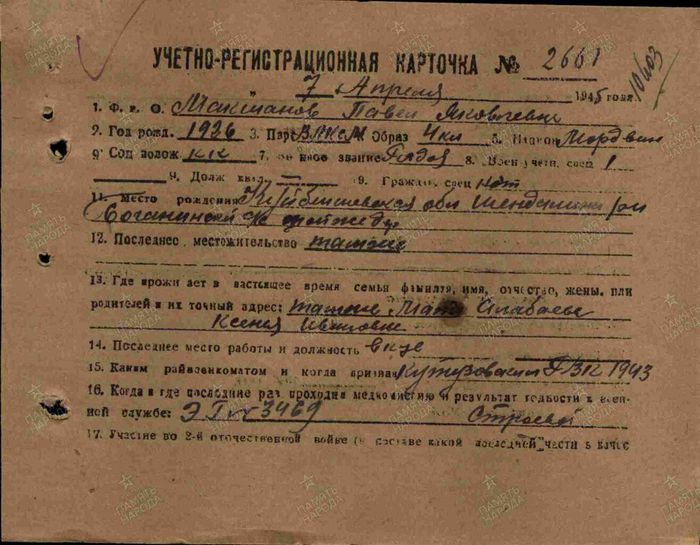 УЧЕТНО-РЕГИСТРАЦИОННАЯ КАРТОЧКА № 2661
10403
7 Апреля 1945 года
1. Ф. и. О. Макшанов Павел Яковлевич
2. Год рожд. 1926 3. Парт ВЛКСМ Образ 4кл 5. Национ Мордвин
6 Соц полож. кк 7. звание Рядов 8. Воен учетн. спец 1
9. Долж квал. — 9. Граждан. спец нет
11. Место рождения Куйбышевская обл Шенталинск рн
с/с
12. Последнее местожительство тамже
13. Где прожи ает в настоящее время семья фамилия, имя, отчество, жены, или
родителей и их точный адрес: тамже Мать
Ксения Ивановна
14. Последнее место работы и должность
15. Каким райвоенкоматом и когда призван Кутузовским РВК 1943
16. Когда и где последние раз проходил медкомиссию и результат годности к воен-
ной службе: ЭГ № 3469 Строевой
17. Участие во 2-й отечественной войне (в составе какой последней части в качес
ПАМЯТЬ НАРОДА